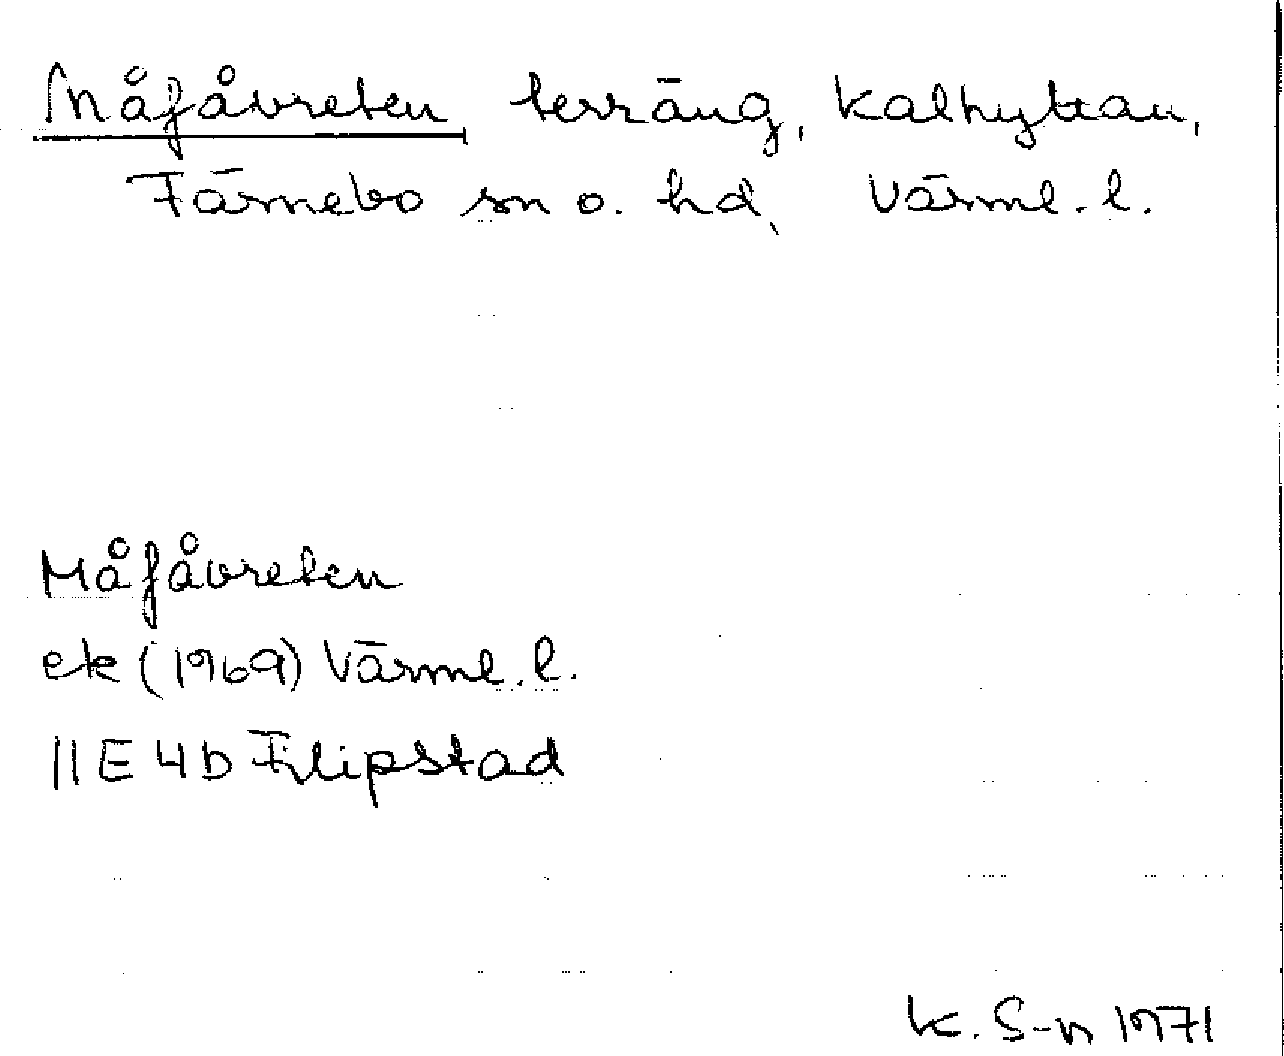 Måfåvreten terräng, Kalhyttan,
Färnebo sn o. hd, Värml. l.
Måfåvreten
ek (1969) Värml. l.
11E 4D Filipstad
K. S-n 1971